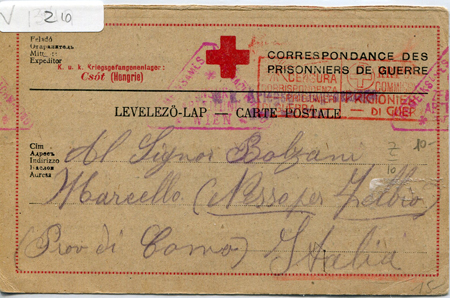 V 210
Feladó
Отправитель
Mitt.
Expeditor
K. u. k. Kriegsgefangenenlager:
Csót (Hongrie)
CORRESPONDANCE DES
PRISONNIERS DE GUERRE
CENSURA
CORRISPONDENZA
PRIGIONIERI
DI GUERRA
LEVELEZŐ-LAP — CARTE POSTALE
WIEN
Cím
Адресъ
Indirizzo
Adresa
Al Signor Bolzani
Marcello (Nesso per Zelbio)
(Prov di Como) Italia
10-
15